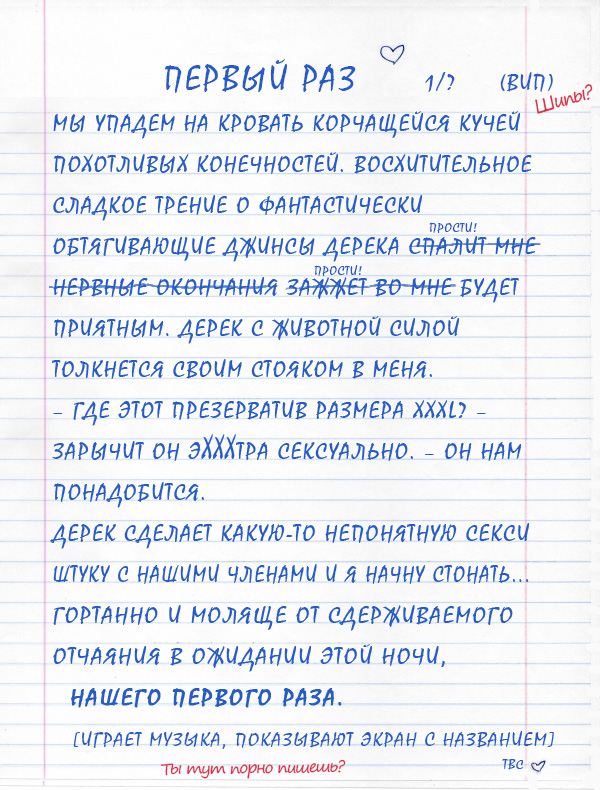 ПЕРВЫЙ РАЗ 1/? (ВИП)
Шипы?
МЫ УПАДЕМ НА КРОВАТЬ КОРЧАЩЕЙСЯ КУЧЕЙ
ПОХОТЛИВЫХ КОНЕЧНОСТЕЙ. ВОСХИТИТЕЛЬНОЕ
СЛАДКОЕ ТРЕНИЕ О ФАНТАСТИЧЕСКИ
ПРОСТИ!
ОБТЯГИВАЮЩИЕ ДЖИНСЫ ДЕРЕКА СПАЛИТ МНЕ
ПРОСТИ!
НЕРВНЫЕ ОКОНЧАНИЯ ЗАЖЖЕТ ВО МНЕ БУДЕТ
ПРИЯТНЫМ. ДЕРЕК С ЖИВОТНОЙ СИЛОЙ
ТОЛКНЕТСЯ СВОИМ СТОЯКОМ В МЕНЯ.
– ГДЕ ЭТОТ ПРЕЗЕРВАТИВ РАЗМЕРА XXXL? –
ЗАРЫЧИТ ОН ЭXXXТРА СЕКСУАЛЬНО. – ОН НАМ
ПОНАДОБИТСЯ.
ДЕРЕК СДЕЛАЕТ КАКУЮ-ТО НЕПОНЯТНУЮ СЕКСИ
ШТУКУ С НАШИМИ ЧЛЕНАМИ И Я НАЧНУ СТОНАТЬ...
ГОРТАННО И МОЛЯЩЕ ОТ СДЕРЖИВАЕМОГО
ОТЧАЯНИЯ В ОЖИДАНИИ ЭТОЙ НОЧИ,
НАШЕГО ПЕРВОГО РАЗА.
[ИГРАЕТ МУЗЫКА, ПОКАЗЫВАЮТ ЭКРАН С НАЗВАНИЕМ]
TBC
Ты тут порно пишешь?